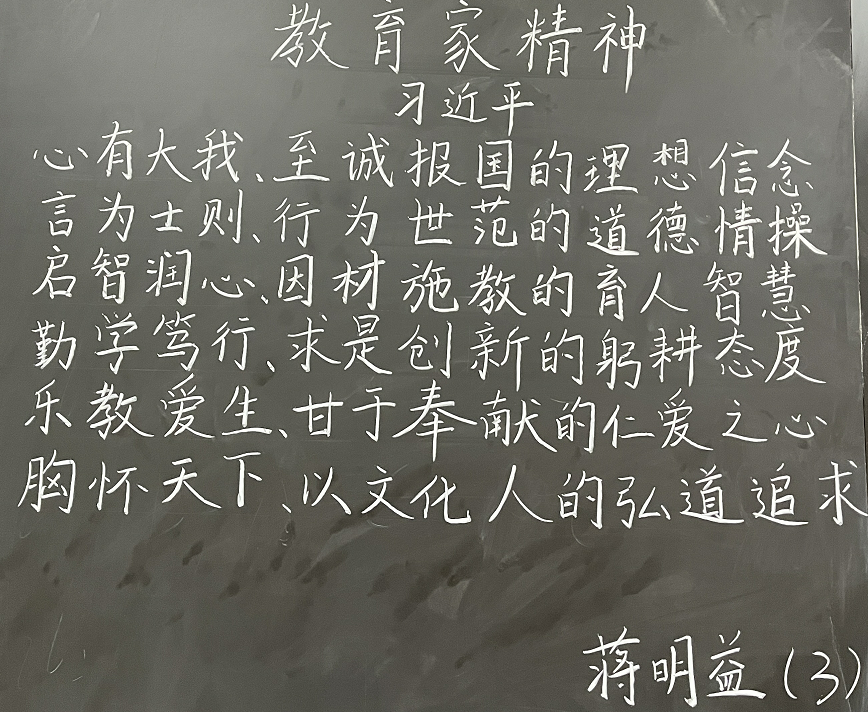 教育家精神
习近平
心有大我、至诚报国的理想信念
言为士则、行为世范的道德情操
启智润心、因材施教的育人智慧
勤学笃行、求是创新的躬耕态度
乐教爱生、甘于奉献的仁爱之心
胸怀天下、以文化人的弘道追求
蒋明益(3)